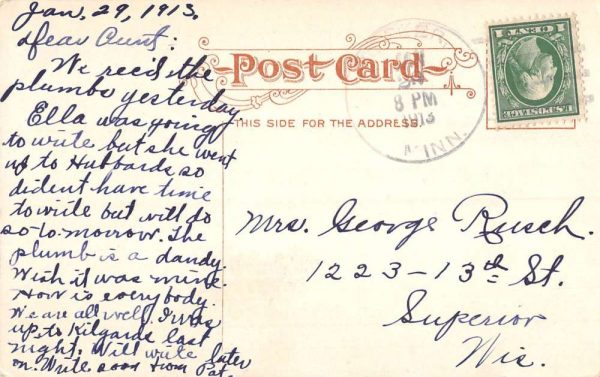 Jan. 29, 1913.
Dear Aunt:
We rec'd the
plumbo yesterday.
Ella was going
to write but she went
up to Hubbards so
dident have time
to write but will do
so to-morrow. The
plumb is a dandy.
Wish it was mine.
How is everybody.
We are all well. I was
up to Kilgarde last
night. Will write later
on. Write soon from Pat.
Post Card
THIS SIDE FOR THE ADDRESS.
8 PM
1913
MINN.
U.S. POSTAGE
1 CENT 1
Mrs. George Rusch.
1223-13th St.
Superior
Wis.